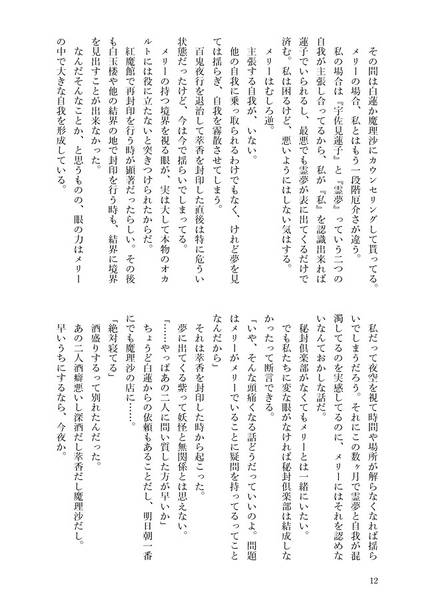 その間は白蓮か魔理沙にカウンセリングして貰ってる。
メリーの場合、私とはもう一段階厄介さが違う。
私の場合は『宇佐見蓮子』と『霊夢』っていう二つの
自我が主張し合ってるから、私が『私』を認識出来れば
蓮子でいられるし、最悪でも霊夢が表に出てくるだけで
済む。私は困るけど、悪いようにはしない気はする。
メリーはむしろ逆。
主張する自我が、いない。
他の自我に乗っ取られるわけでもなく、けれど夢を見
ては揺らぎ、自我を霧散させてしまう。
百鬼夜行を退治して萃香を封印した直後は特に危うい
状態だったけど、今は今で揺らいでしまってる。
メリーの持つ境界を視る眼が、実は大して本物のオカ
ルトには役に立たないと突きつけられたからだ。
紅魔館で再封印を行う時が顕著だったらしい。その後
も白玉楼や他の結界の地で封印を行う時も、結界に境界
を見出すことが出来なかった。
なんだそんなことか、と思うものの、眼の力はメリー
の中で大きな自我を形成している。
私だって夜空を視て時間や場所が解らなくなれば揺ら
いでしまうだろう。それにこの数ヶ月で霊夢と自我が混
濁してるのを実感してるのに、メリーにはそれを認めな
いなんておかしな話だ。
秘封倶楽部がなくてもメリーとは一緒にいたい。
でも私たちに変な眼がなければ秘封倶楽部は結成しな
かったって断言できる。
「いや、そんな頭痛くなる話どうだっていいのよ。問題
はメリーがメリーでいることに疑問を持ってるってこと
なんだから」
それは萃香を封印した時から起こった。
夢に出てくる紫って妖怪と無関係とは思えない。
「……やっぱあの二人に問い質した方が早いか」
ちょうど白蓮からの依頼もあることだし、明日朝一番
にでも魔理沙の店に……。
「絶対寝てる」
酒盛りするって別れたんだった。
あの二人酒癖悪いし深酒だし萃香だし魔理沙だし。
早いうちにするなら、今夜か。
12